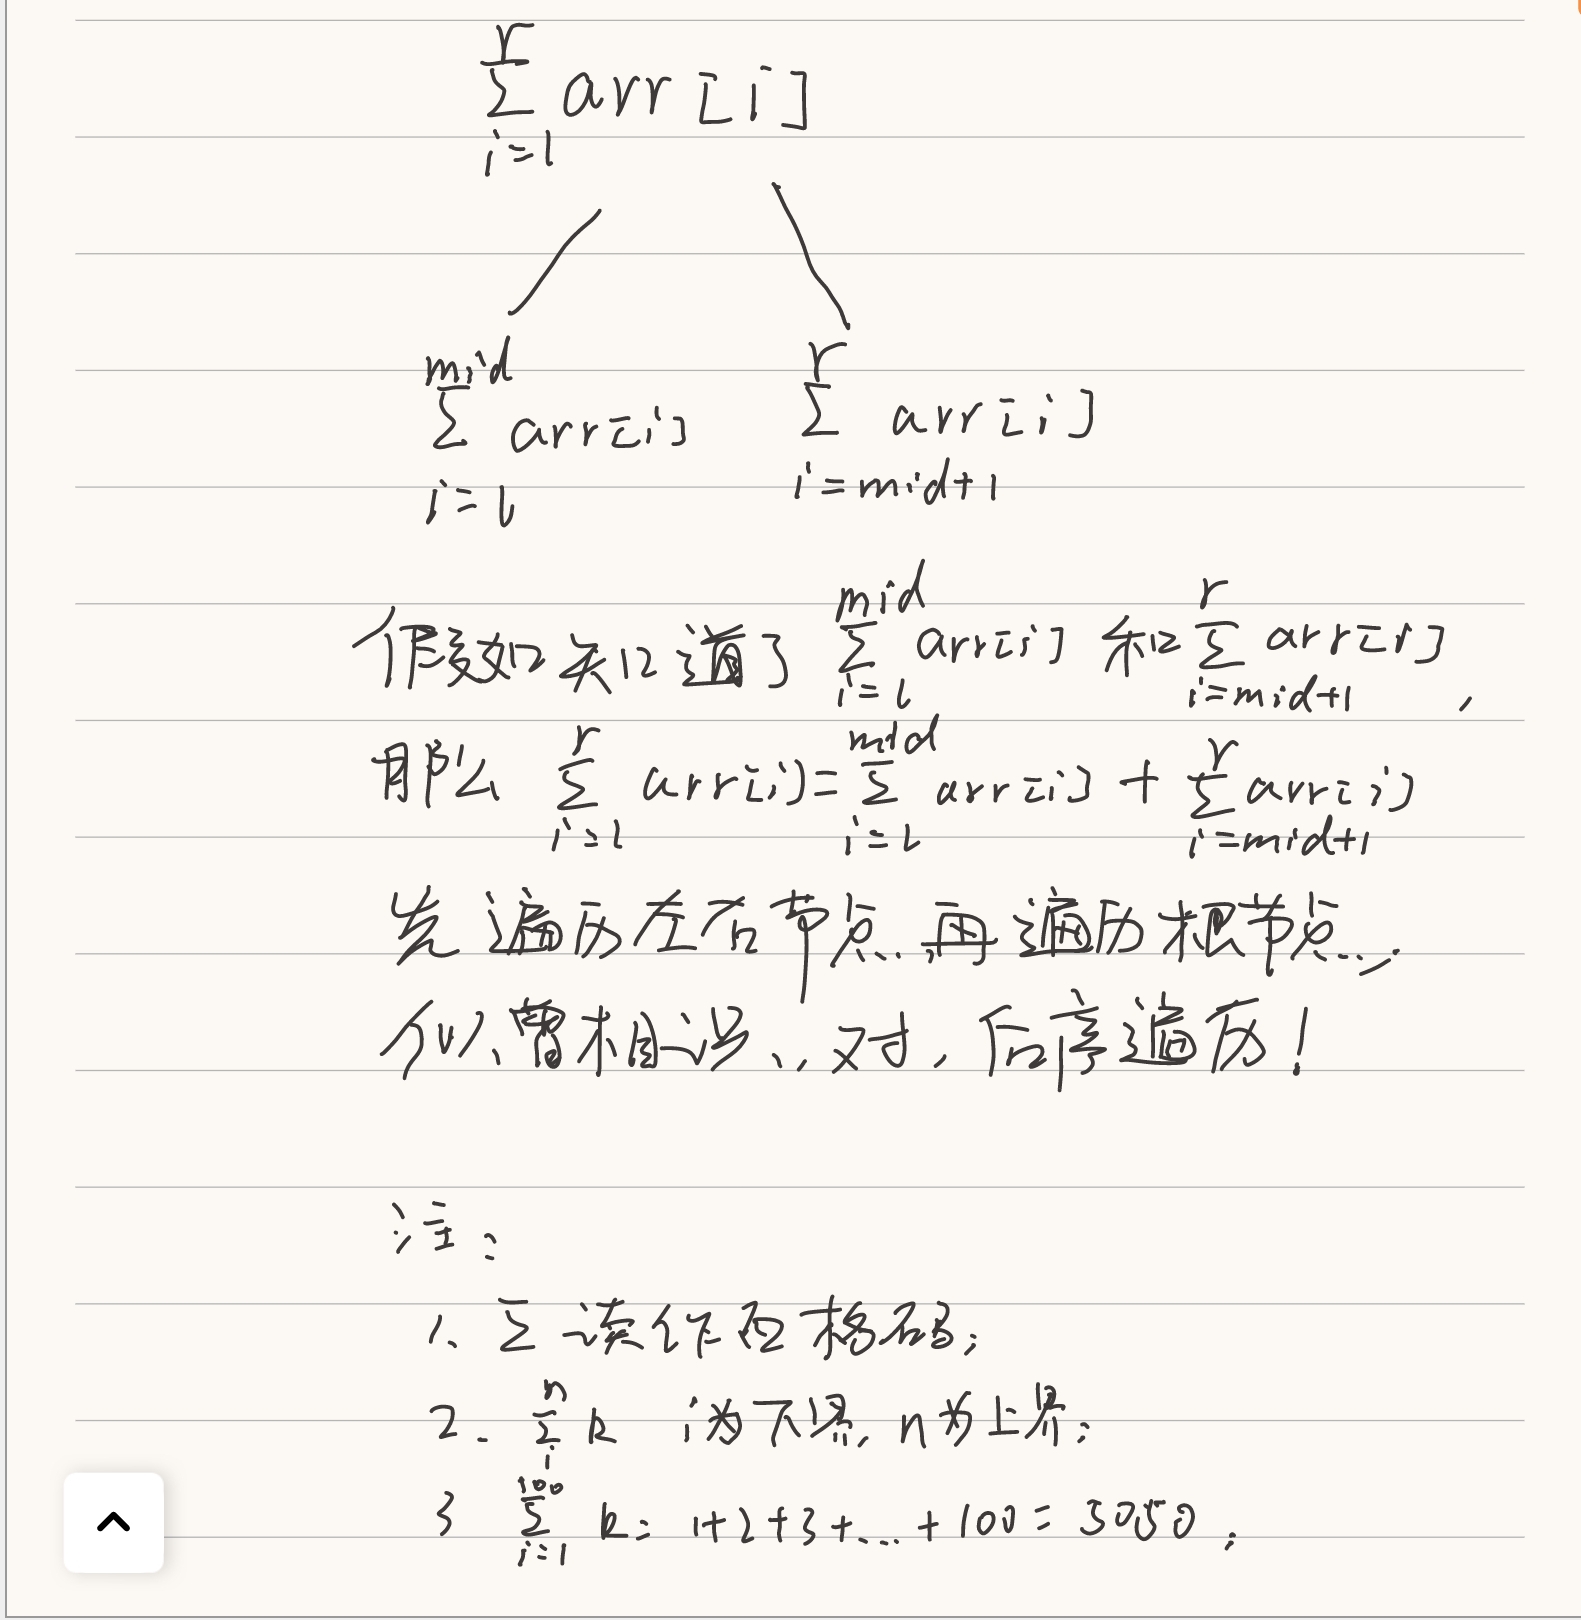 r
∑ arr[i]
i=l
mid
∑ arr[i]
i=l
r
∑ arr[i]
i=mid+1
假如知道了 ∑_{i=l}^{mid} arr[i] 和 ∑_{i=mid+1}^{r} arr[i],
那么 ∑_{i=l}^{r} arr[i]=∑_{i=l}^{mid} arr[i] + ∑_{i=mid+1}^{r} arr[i]
先遍历左右节点,再遍历根节点...,
似曾相识...对,后序遍历!
注:
1、∑读作西格玛;
2. ∑_{i}^{n} k i为下界,n为上界;
3 ∑_{i=1}^{100} k= 1+2+3+...+100=5050;